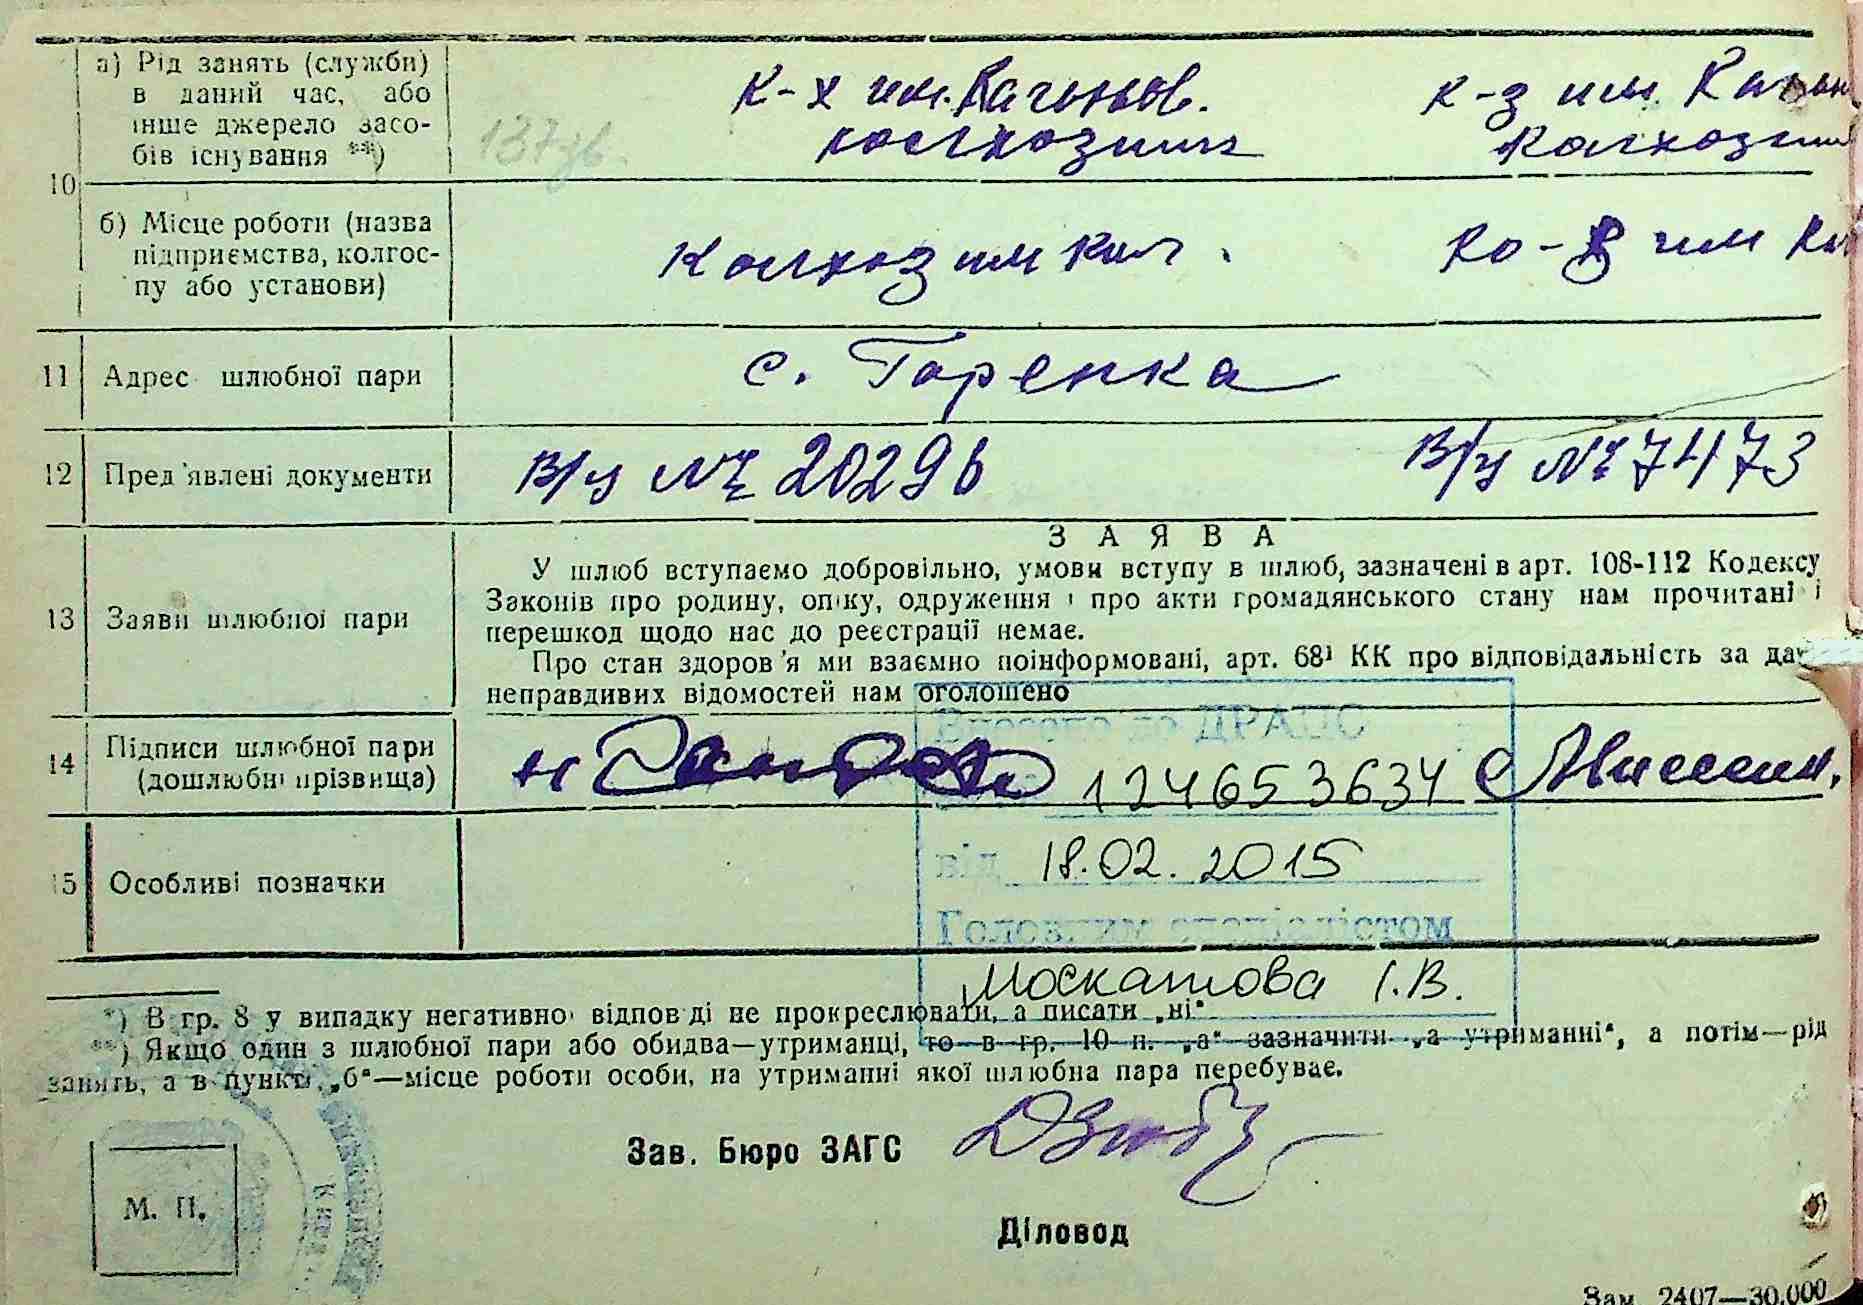 10
а) Рід занять (служби)
в даний час, або
інше джерело засо-
бів існування **)
137зв.
К-х им.
колхозник
к-з им.
Колхозни
б) Місце роботи (назва
підприємства, колгос-
пу або установи)
Колхоз им Кал.
Ко-з им Ка
11 Адрес шлюбної пари
с. Горенка
12 Пред'явлені документи
В/у № 20296
В/у № 7473
13 Заяви шлюбної пари
ЗАЯВА
У шлюб вступаємо добровільно, умови вступу в шлюб, зазначені в арт. 108-112 Кодексу
Законів про родину, опіку, одруження і про акти громадянського стану нам прочитані і
перешкод щодо нас до реєстрації немає.
Про стан здоров'я ми взаємно поінформовані, арт. 68¹ КК про відповідальність за да
неправдивих відомостей нам оголошено
14 Підписи шлюбної пари
(дошлюбні прізвища)
Внесено до ДРАЦС
124653634
від 18.02.2015
Головним спеціалістом
Москатова І.В.
15 Особливі позначки
*) В гр. 8 у випадку негативної відповіді не прокреслювати, а писати „ні“
**) Якщо один з шлюбної пари або обидва—утриманці, то в гр. 10 п. „а“ зазначити „а утриманні“, а потім—рід
занять, а в пункті „б“—місце роботи особи, на утриманні якої шлюбна пара перебуває.
Зав. Бюро ЗАГС
М. П.
Діловод
Зам. 2407—30.000